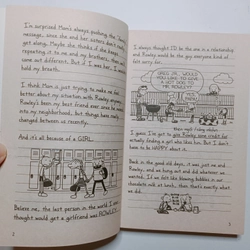 I'm surprised Mom's always pushing the "family"
message, cause she and her sisters don't really
get along. Maybe she thinks if she keeps
repeating it to me and my brothers, then we'll
come out different. But if I was her, I wouldn't
hold my breath.
I think Mom is just trying to make me feel
better about my situation with Rowley anyway.
Rowley's been my best friend ever since he moved
into my neighborhood, but things have really
changed between us recently.
And it's all because of a GIRL.
Believe me, the last person in the world I ever
thought would get a girlfriend was ROWLEY.
2
I always thought I'D be the one in a relationship
and Rowley would be the guy everyone kind of
felt sorry for.
GREG JR., WOULD
YOU LIKE TO GIVE
A HOT DOG TO
MR. ROWLEY?
I guess I've got to give Rowley some credit for
actually finding a girl who likes him. But I don't
have to be HAPPY about it.
Back in the good old days, it was just me and
Rowley, and we hung out and did whatever we
wanted. If we felt like blowing bubbles in our
chocolate milk at lunch, then that's exactly what
we did.
3